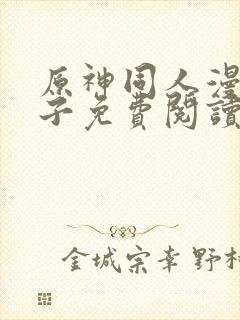 原神同人漫
子免費閱讀
金城宗幸野村